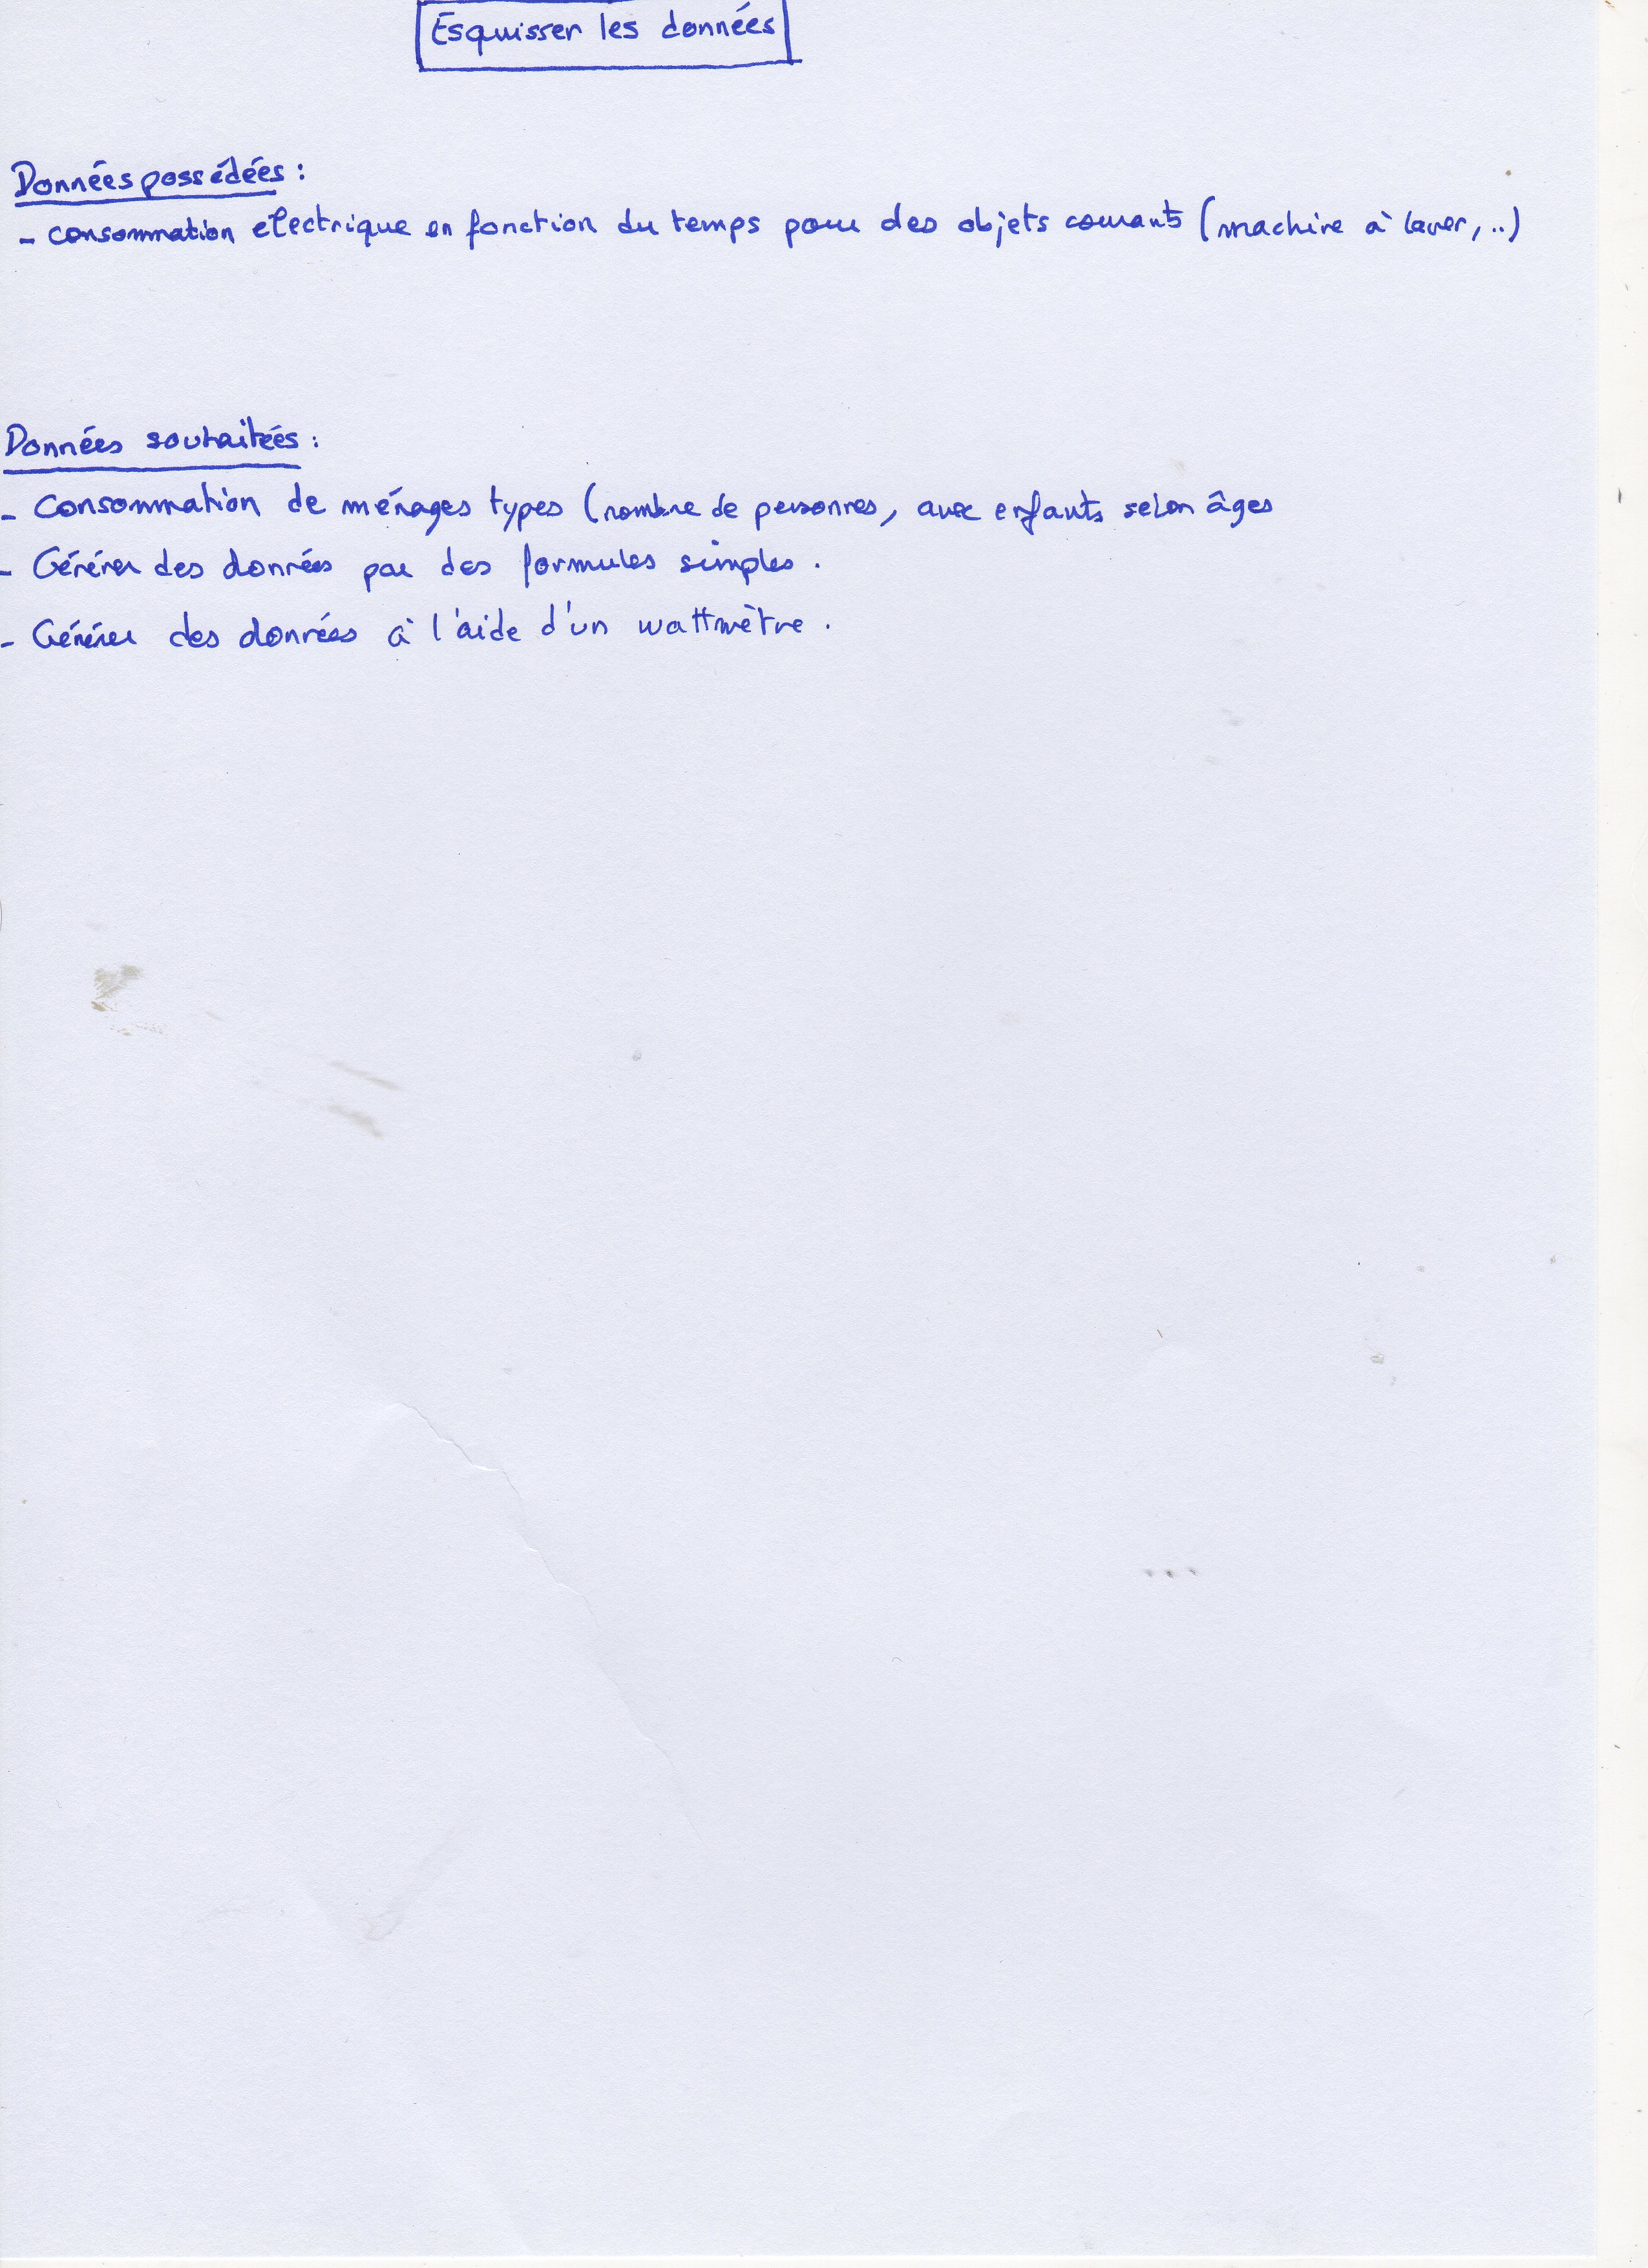 Esquisser les données
Données possédées :
- consommation electrique en fonction du temps pour des objets courants (machine à laver, ..)
Données souhaitées :
- Consommation de ménages types (nombre de personnes, avec enfants selon âges
- Générer des données par des formules simples .
- Générer des données à l'aide d'un wattmètre .